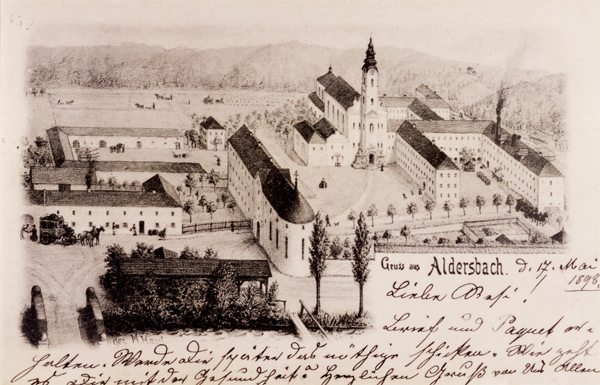 Gruss aus Aldersbach.
d. 17. Mai
1898
Liebe Resi!
Brief und Paquet er-
halten. Werde Dir später das nöthige schicken. Wie geht
es Dir mit der Gesundheit? Herzlichen Gruß von uns Allen